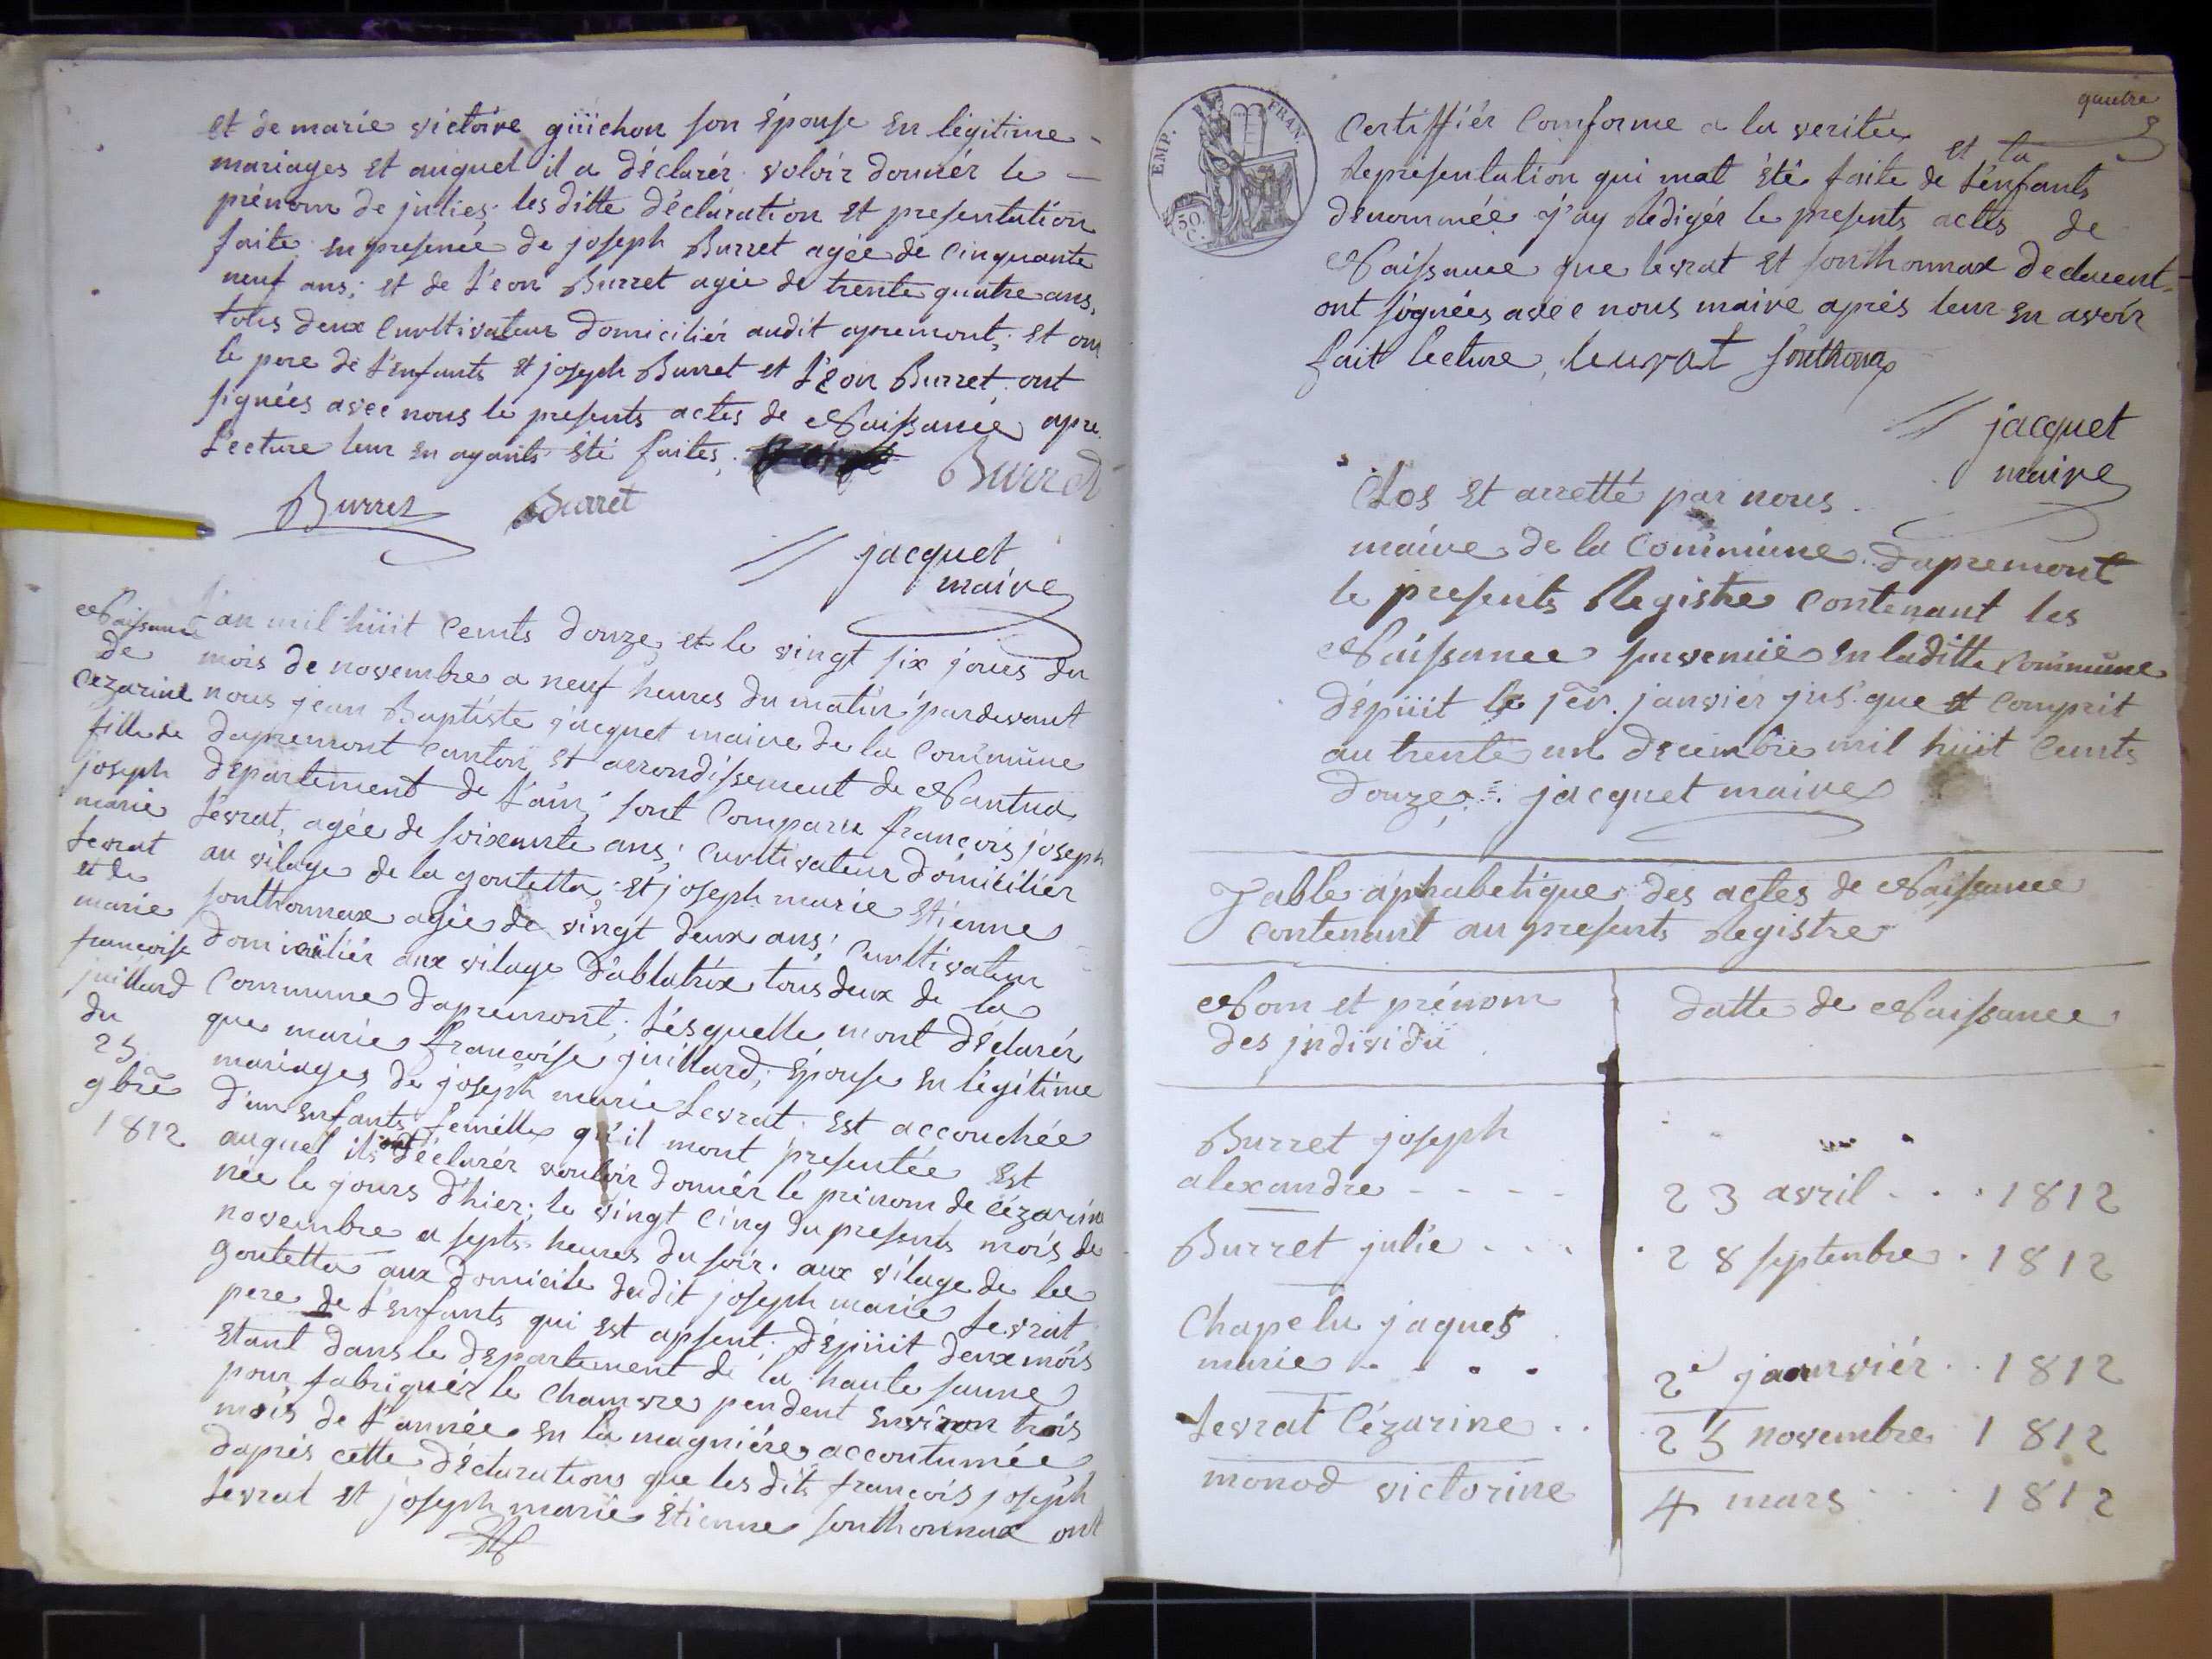 et de marie victoire güichon son épouse en légitime
mariages et auquel il a déclarér voloir donnér le
prénom de julies, les ditte déclaration et presentation
faite en presence de joseph Burret agée de cinquante
neuf ans; et de Léon Burret agée de trente quatre ans,
tous deux Curltivateur domiciliér audit apremont; et ont
le pere de L'enfants et joseph Burret et Léon Burret ont
signées avec nous le presents actes de Naissance apre.
Lecture leur en ayants été faites.
Burret
Burret Burret
jacquet
maire
Naissance
de
Cézarine
fille de
joseph
marie
Levrat
et de
marie
francoise
juillard
du
25
9bre
1812
L'an mil huit Cents douze et le vingt six jours du
mois de novembre a neuf heures du matin pardevant
nous jean Baptiste jacquet maire de la Commune
dapremont canton et arrondissement de Nantua
département de L'ain; sont Comparu françois joseph
Levrat agée de soixante ans; Curltivateur domiciliér
au vilage de la goutetta; et joseph marie Etienne
sonthonnax agée de vingt deux ans; Curltivateur
domiciliér aux vilage d'ablatrix tous deux de la
Commune dapremont; Lésquelle mont déclarér
que marie françoise juillard; épouse en légitime
mariages de joseph marie Levrat est accouchée
d'un enfants femelle qu'il mont presentée est
auquel ils ont déclarér vouloir donnér le prénom de Cézarine
née le jours d'hier; le vingt Cinq du presents mois de
novembre a septs heures du soir. aux vilage de la
goutetta aux domicile dudit joseph marie Levrat,
pere de L'enfants qui est apsent; dépuit deux mois
etant dans le departement de la haute saune
pour fabriquér le Chamvre pendent environ trois
mois de L'année en la magniére accoutumée,
daprés cette déclarations que les dits françois joseph
Levrat et joseph marie Etienne sonthonnax ont
EMP. FRAN.
50 C.
Certiffiér Comforme a la verités
et la
Representation qui mat été faite de L'enfants
dénommée j'ay Redigér le presents actes de
Naissance que levrat et sonthonnax declarent
ont signées avec nous maire aprés leur en avoir
fait lecture, leuvrat Sonthonax
jacquet
maire
Clos et arretté par nous
maire de la Commune dapremont
le presents Registre Contenant les
Naissance survenüe en laditte Commune
dépuit le 1er. janviér jus'que et Comprit
au trente un decembre mil huit Cents
douze. jacquet maire
Table aphabetique des actes de Naissance
Contenant au presents Registre
Nom et prénom
des individü
datte de Naissance
Burret joseph
alexandre - - - -
23 avril . . . 1812
Burret julie . . . .
28 septenbre . 1812
Chapelu jaques
marie . . . .
2e janviér . . 1812
Levrat Cézarine . .
25 novembre 1812
monod victorine
4 mars . . . . 1812